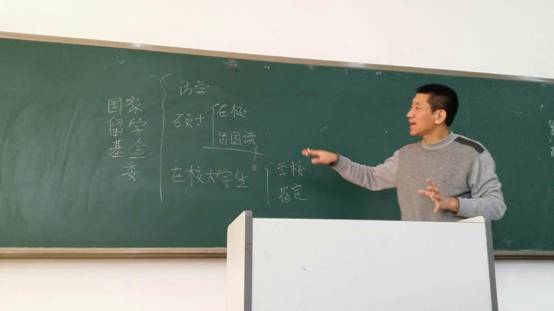 国家
留学
基金
委
访学
硕士
在校
出国读
在校大学生
学校
指定